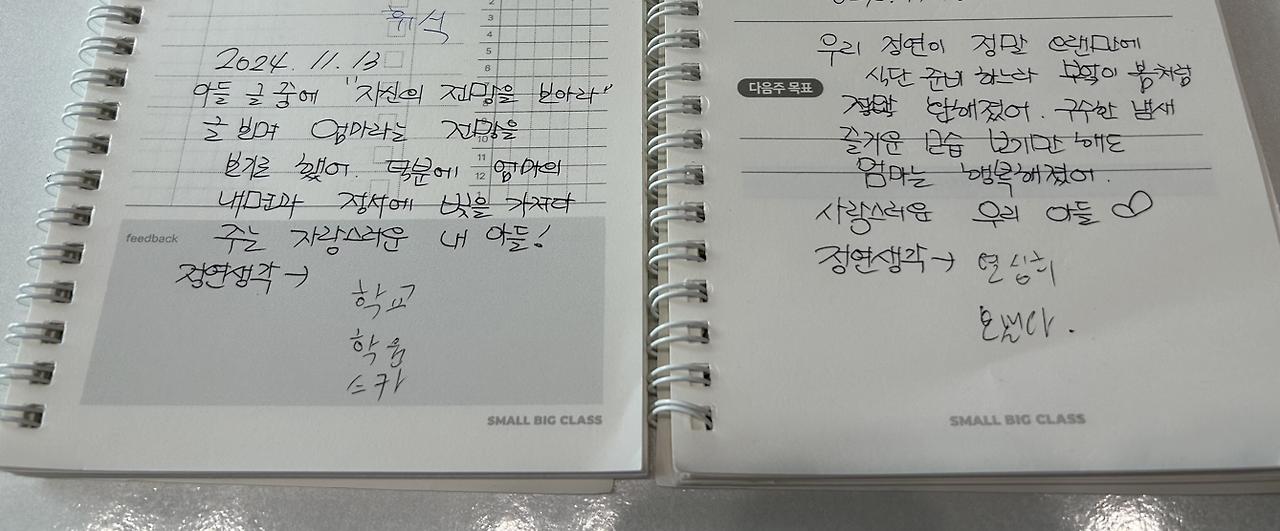 휘식
2
3
4
5
6
10
11
12
2024. 11. 13
아들 글 중에 "자신의 전망을 보아라"
글 보며 엄마라는 전망을
보기로 했어. 덕분에 엄마의
내면과 정서에 빛을 가져다
주는 자랑스러운 내 아들!
feedback
정연생각→
학교
학원
스카
SMALL BIG CLASS
우리 정연이 정말 오랜만에
식단 준비 하느라 부엌이 봄처럼
다음주 목표
정말 환해졌어. 구수한 냄새
즐거운 모습 보기만 해도
엄마는 행복해졌어.
사랑스러운 우리 아들♡
정연생각→ 열심히
보낸다.
SMALL BIG CLASS